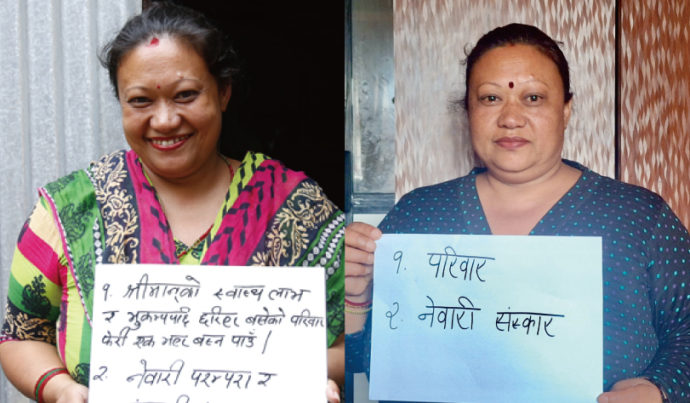 १. श्रीमान्‌को स्वास्थ लाभ
र भुकम्पपछि छरिएर बसेको परिवार
फेरी एक भएर बस्न पाउँ ।
२. नेवारी परम्परा र
१. परिवार
२. नेवारी संस्कार